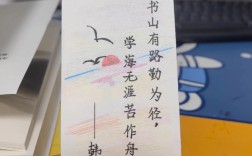 书山有路勤为径，
学海无涯苦作舟
——韩